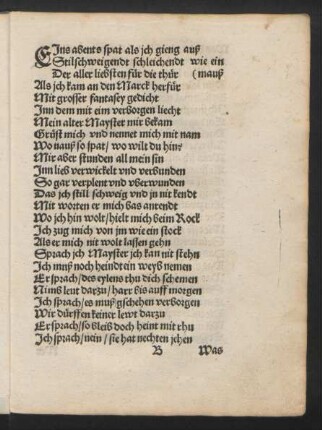 EIns abents spat als jch gieng auß
Stilschweigendt schleichendt wie ein
Der aller liebsten für die thür (mauß
Als jch kam an den Marck herfür
Mit grosser fantasey gedicht
Inn dem mit eim verborgen liecht
Mein alter Mayster mir bekam
Grüst mich vnd nennet mich mit nam
Wo nauß so spat / wo wilt du hin?
Mir aber stunden all mein sin
Inn lieb verwickelt vnd verbunden
So gar verplent vnd vberwunden
Das jch still schweig vnd jn nit kendt
Mit worten er mich bas anrendt
Wo jch hin wolt / hielt mich beim Rock
Ich zug mich von jm wie ein stock
Als er mich nit wolt lassen gehn
Sprach jch Mayster jch kan nit stehn
Ich muß noch heindt ein weyb nemen
Er sprach / des eylens thu dich schemen
Nimb leut darzu / harr bis auff morgen
Ich sprach / es muß gschehen verborgen
Wir dürffen keiner lewt darzu
Er sprach / so bleib doch heint mit rhu
Ich sprach / nein / sie hat nechten jehen
B Was